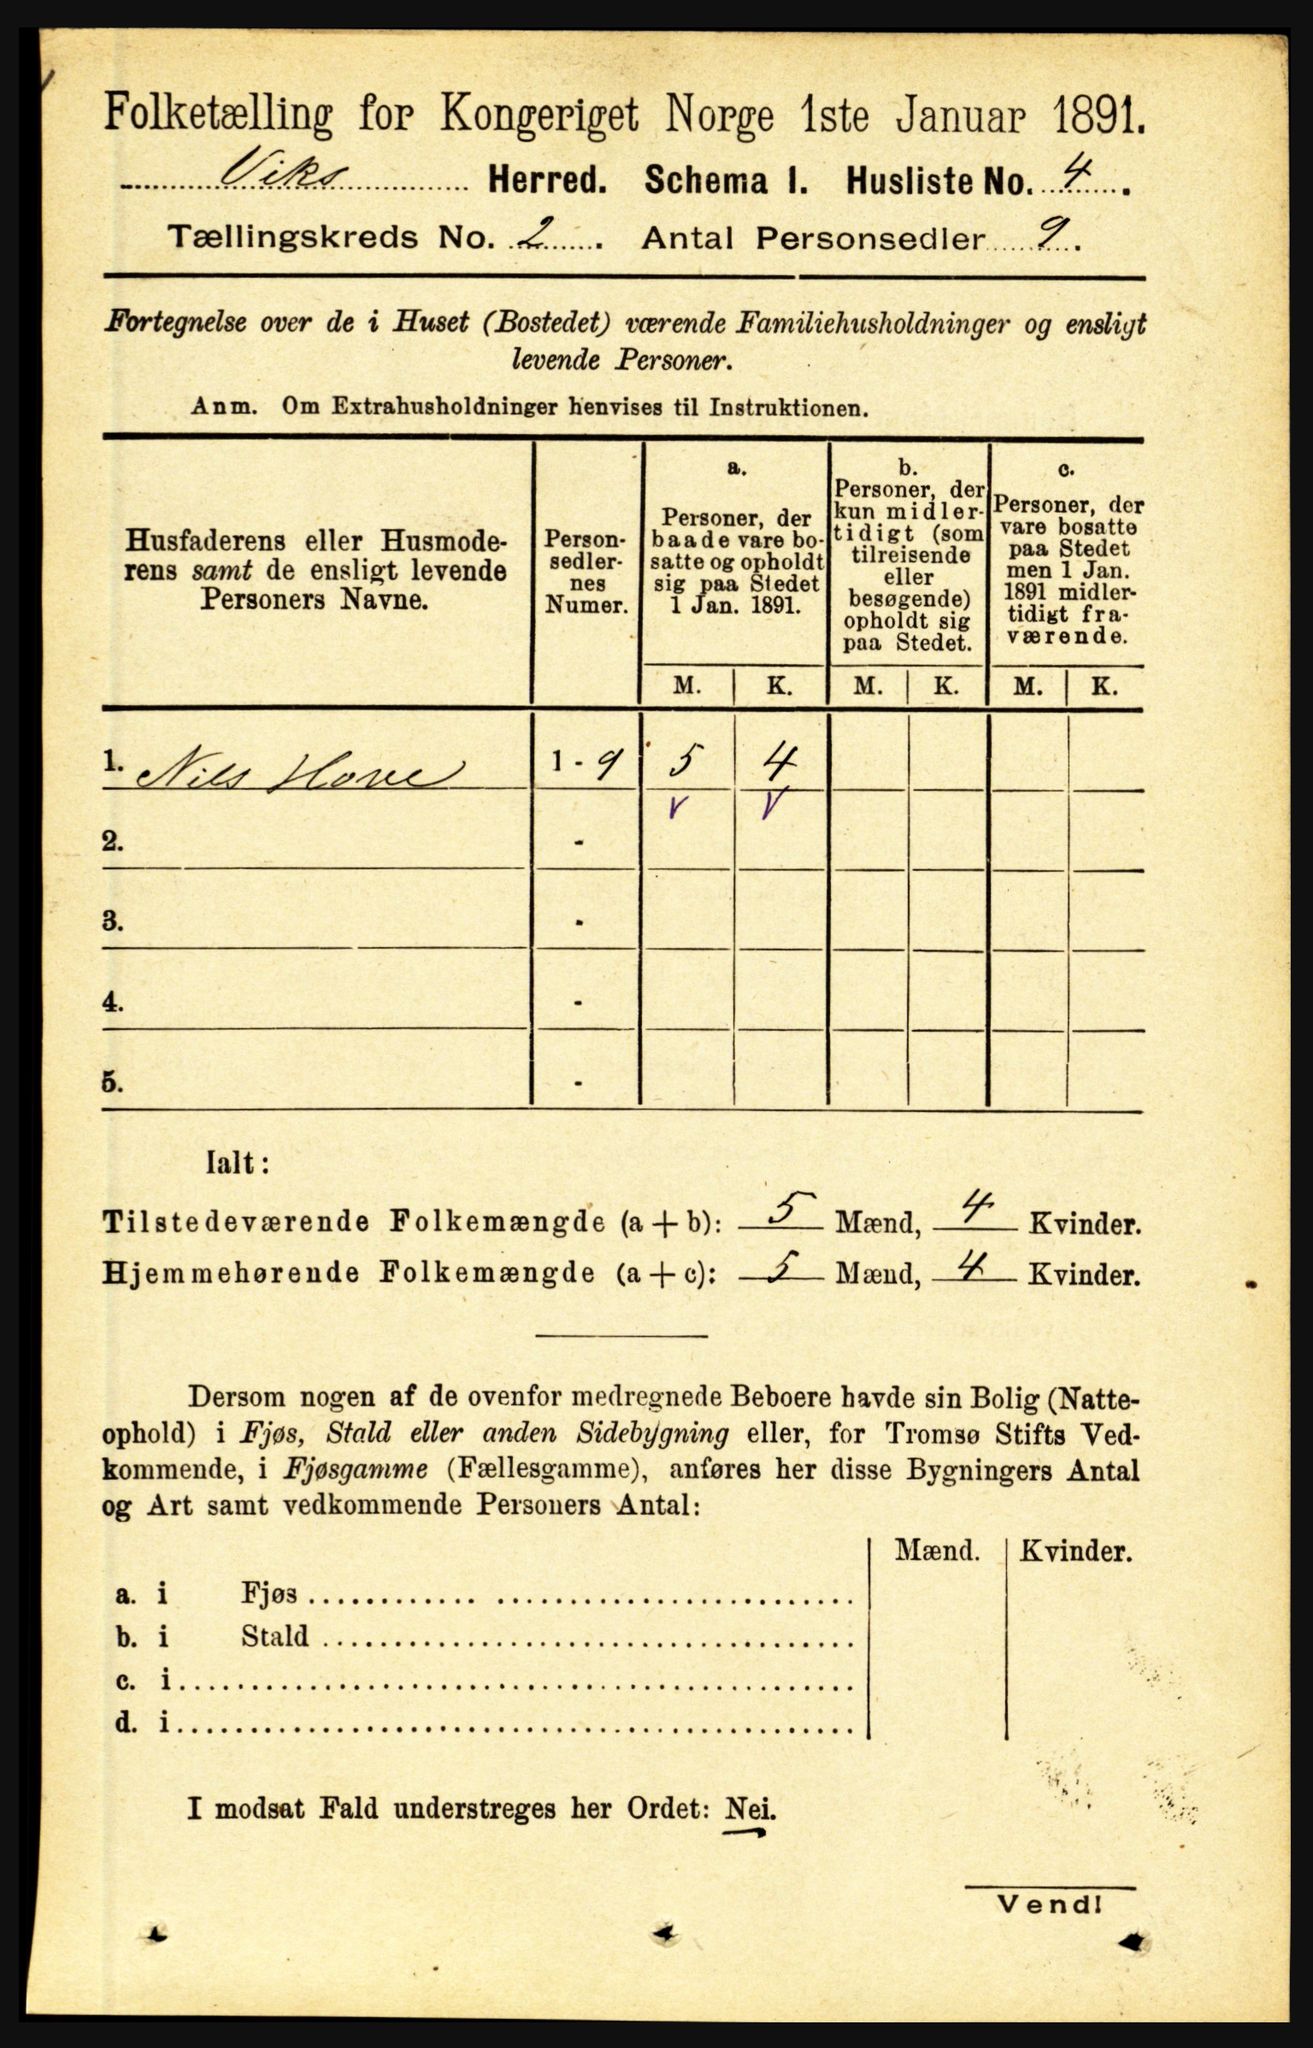 Folketælling for Kongeriget Norge 1ste Januar 1891.
Viks Herred. Schema I. Husliste No. 4.
Tællingskreds No. 2. Antal Personsedler 9.
Fortegnelse over de i Huset (Bostedet) værende Familiehusholdninger og ensligt
levende Personer.
Anm. Om Extrahusholdninger henvises til Instruktionen.
Husfaderens eller Husmode-
rens samt de ensligt levende
Personers Navne.
Person-
sedler-
nes
Numer.
a.
Personer, der
baade vare bo-
satte og opholdt
sig paa Stedet
1 Jan. 1891.
b.
Personer, der
kun midler-
tidigt (som
tilreisende
eller
besøgende)
opholdt sig
paa Stedet.
c.
Personer, der
vare bosatte
paa Stedet
men 1 Jan.
1891 midler-
tidigt fra-
værende.
M. K. M. K. M. K.
1. Nils Hove 1 - 9 5 4
v v
2. -
3. -
4. -
5. -
Ialt:
Tilstedeværende Folkemængde (a + b): 5 Mænd, 4 Kvinder.
Hjemmehørende Folkemængde (a + c): 5 Mænd, 4 Kvinder.
Dersom nogen af de ovenfor medregnede Beboere havde sin Bolig (Natte-
ophold) i Fjøs, Stald eller anden Sidebygning eller, for Tromsø Stifts Ved-
kommende, i Fjøsgamme (Fællesgamme), anføres her disse Bygningers Antal
og Art samt vedkommende Personers Antal:
Mænd. Kvinder.
a. i Fjøs
b. i Stald
c. i
d. i
I modsat Fald understreges her Ordet: Nei.
Vend!